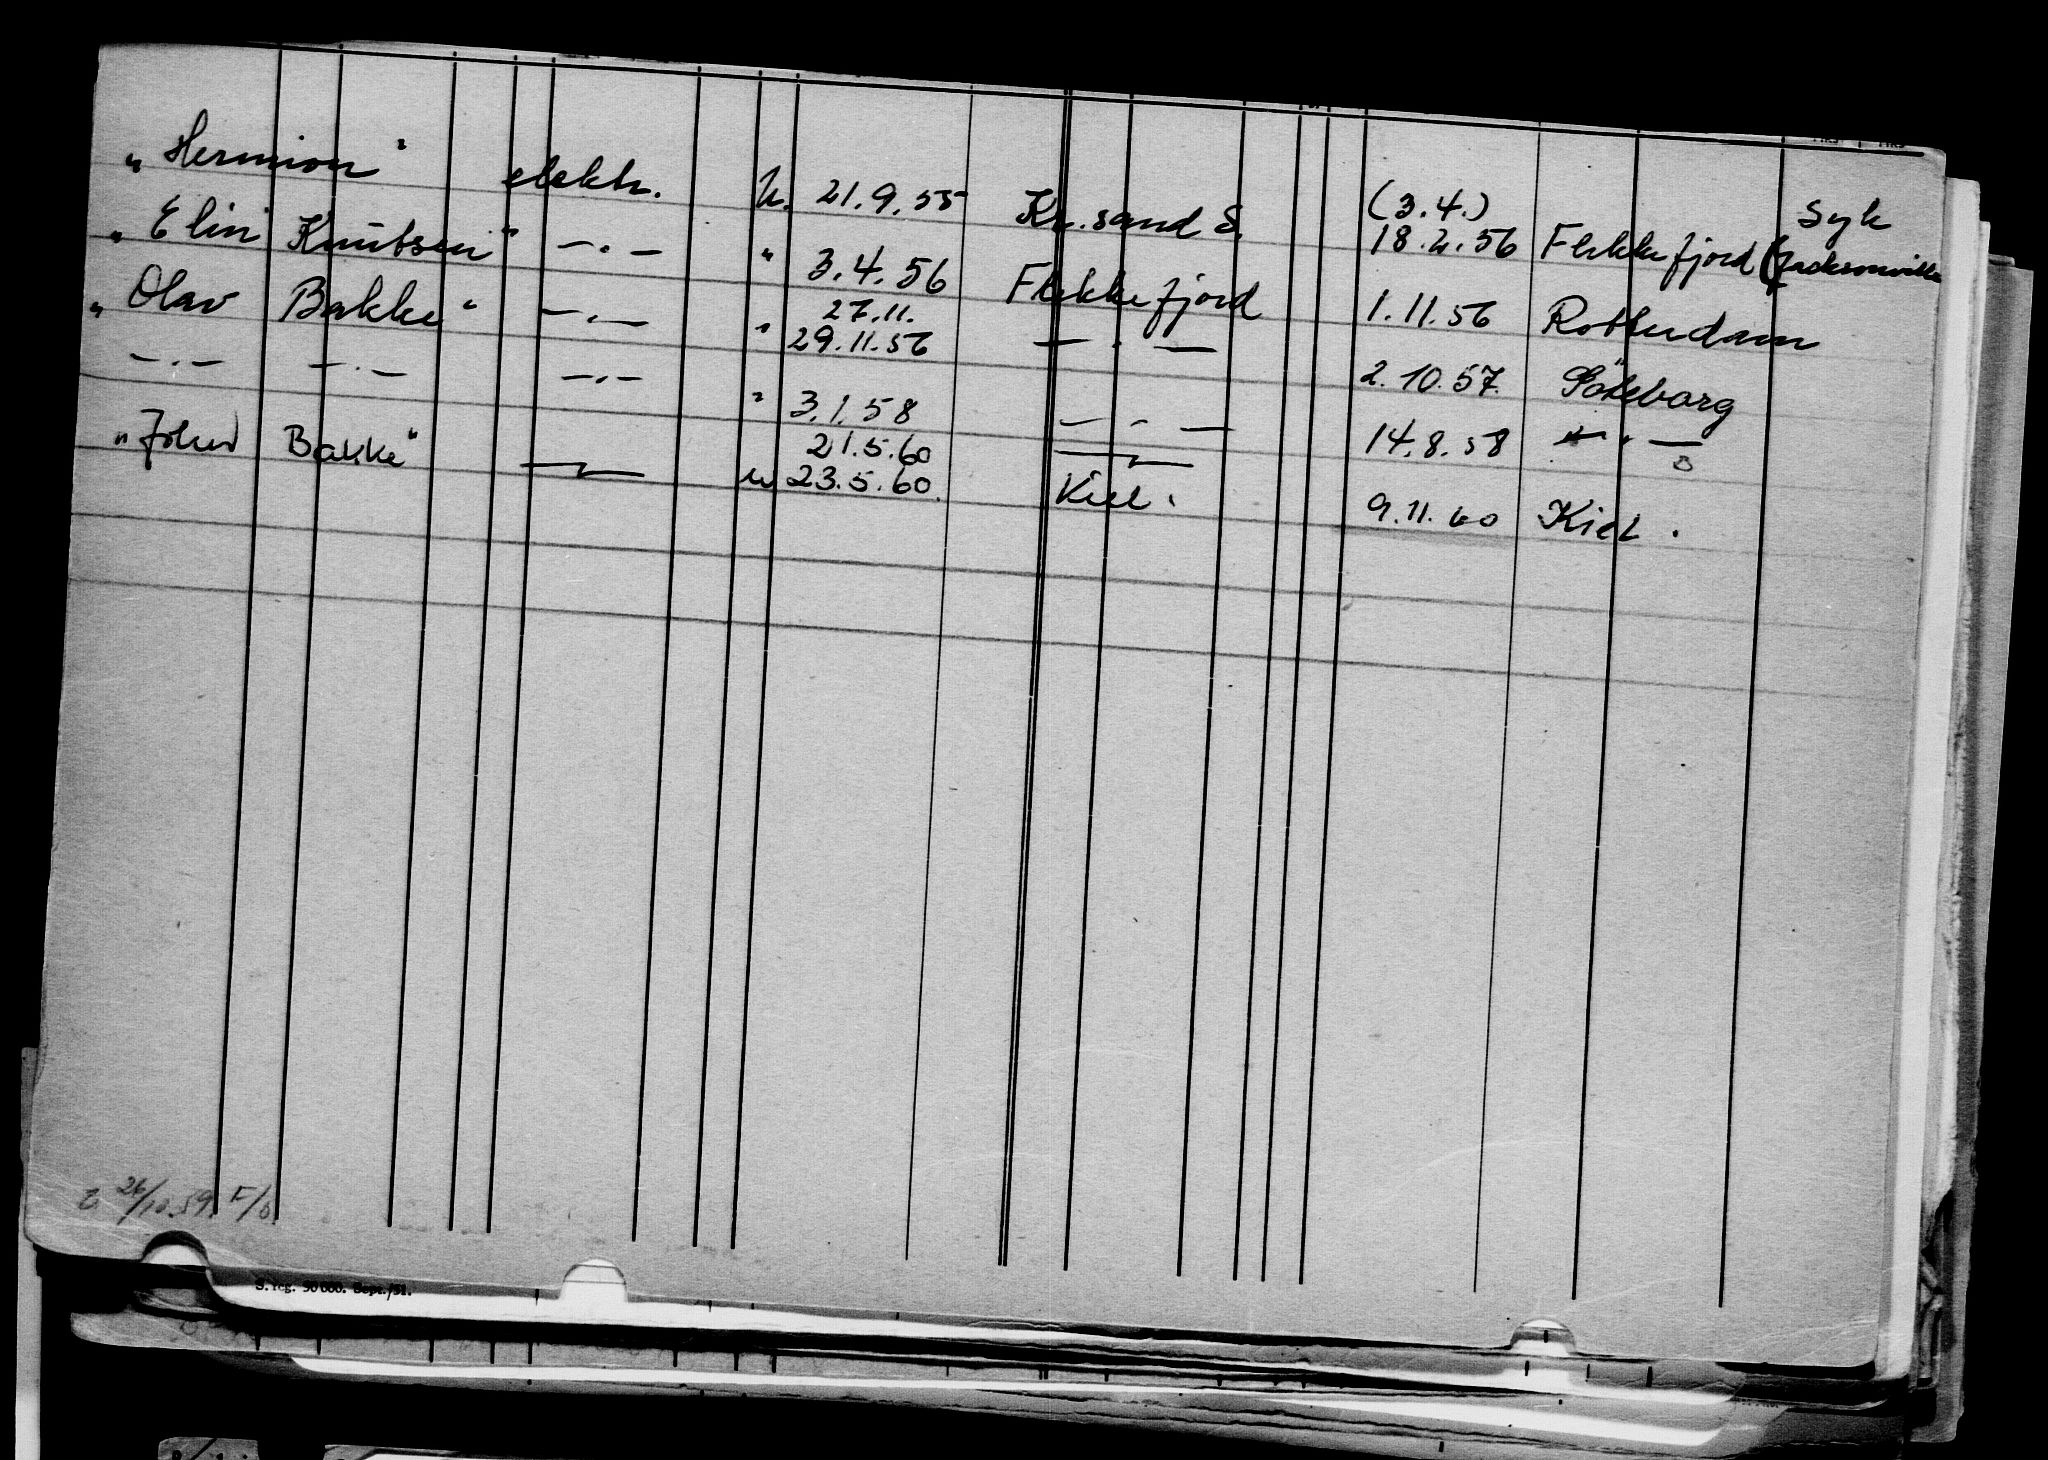 „Hermion" elektr. U. 21.9.55 Kr.sand S. (3.4.) 18.2.56 Flekkefjord (Jacksonville Syk
„Elin Knutsen" —.— " 3.4.56 Flekkefjord 1.11.56 Rotterdam
„Olav Bakke" —.— " 27.11. 29.11.56 —.— 2.10.57. Göteborg
—.— —.— —.— " 3.1.58 —.— 14.8.58 —.—
„John Bakke" — u 21.5.60 23.5.60. — Kiel. 9.11.60 Kiel.
26/10.59. F/
S. reg. 50 000. Sept./51.